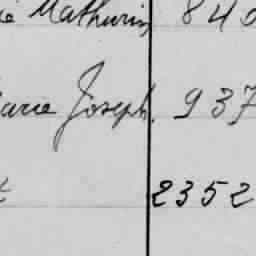 Mathurin 840
Marie Joseph. 937
2352